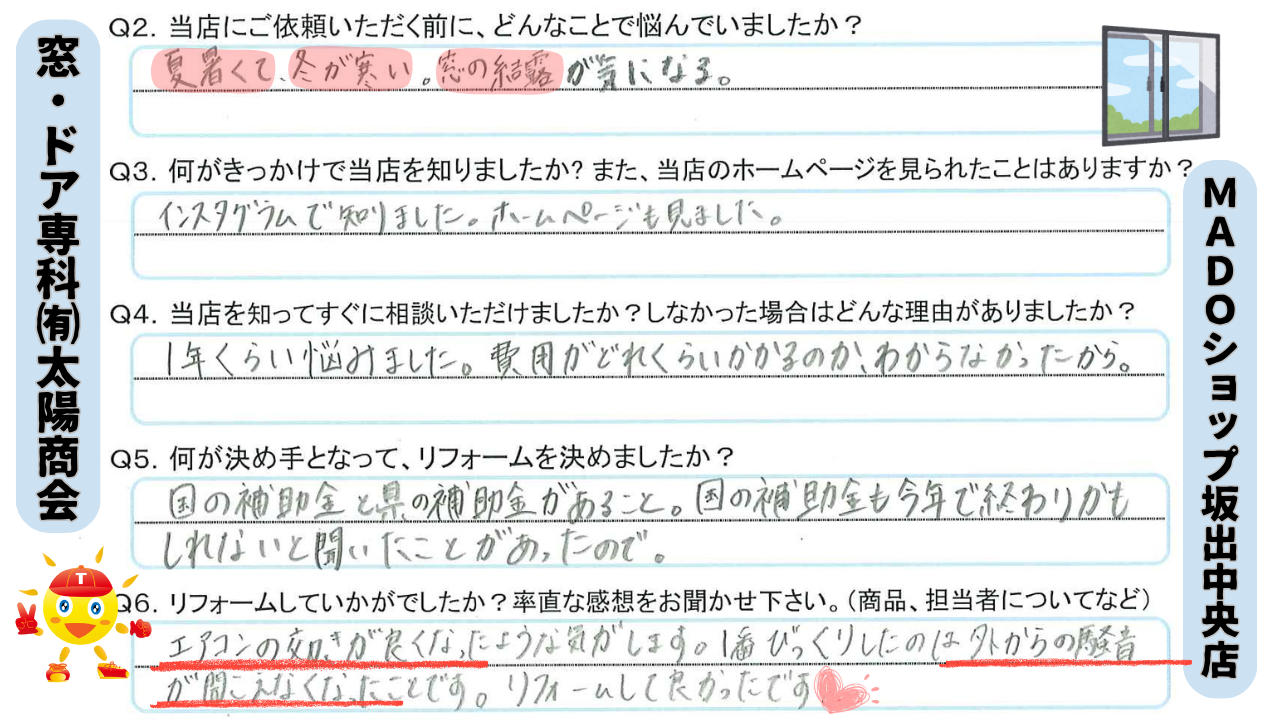 窓・ドア専科㈲太陽商会
Q2. 当店にご依頼いただく前に、どんなことで悩んでいましたか？
夏暑くて、冬が寒い。窓の結露が気になる。
Q3. 何がきっかけで当店を知りましたか? また、当店のホームページを見られたことはありますか？
インスタグラムで知りました。ホームページも見ました。
Q4. 当店を知ってすぐに相談いただけましたか？しなかった場合はどんな理由がありましたか？
1年くらい悩みました。費用がどれくらいかかるのか、わからなかったから。
Q5. 何が決め手となって、リフォームを決めましたか？
国の補助金と県の補助金があること。国の補助金も今年で終わりかも
しれないと聞いたことがあったので。
Q6. リフォームしていかがでしたか？率直な感想をお聞かせ下さい。（商品、担当者についてなど）
エアコンの効きが良くなったような気がします。1番びっくりしたのは外からの騒音
が聞こえなくなったことです。リフォームして良かったです
MADOショップ坂出中央店
T